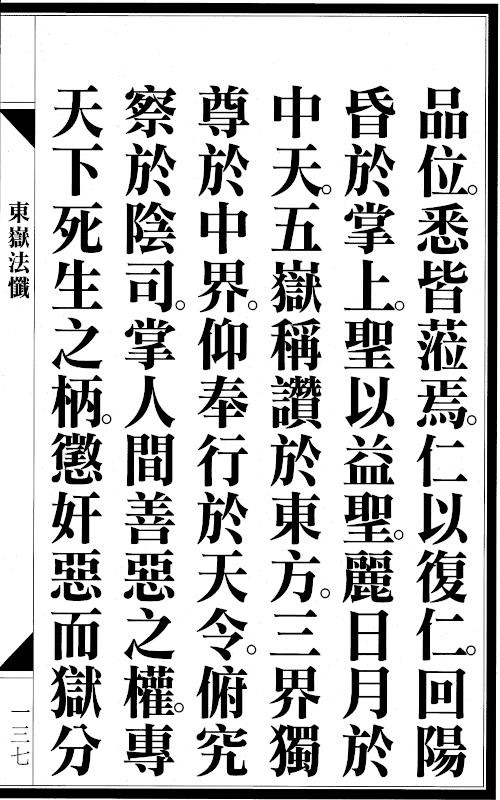 品位。悉皆蒞焉。仁以復仁。回陽
昏於掌上。聖以益聖。麗日月於
中天。五嶽稱讚於東方。三界獨
尊於中界。仰奉行於天令。俯究
察於陰司。掌人間善惡之權。專
天下死生之柄。懲奸惡而獄分
東嶽法懺
一三七